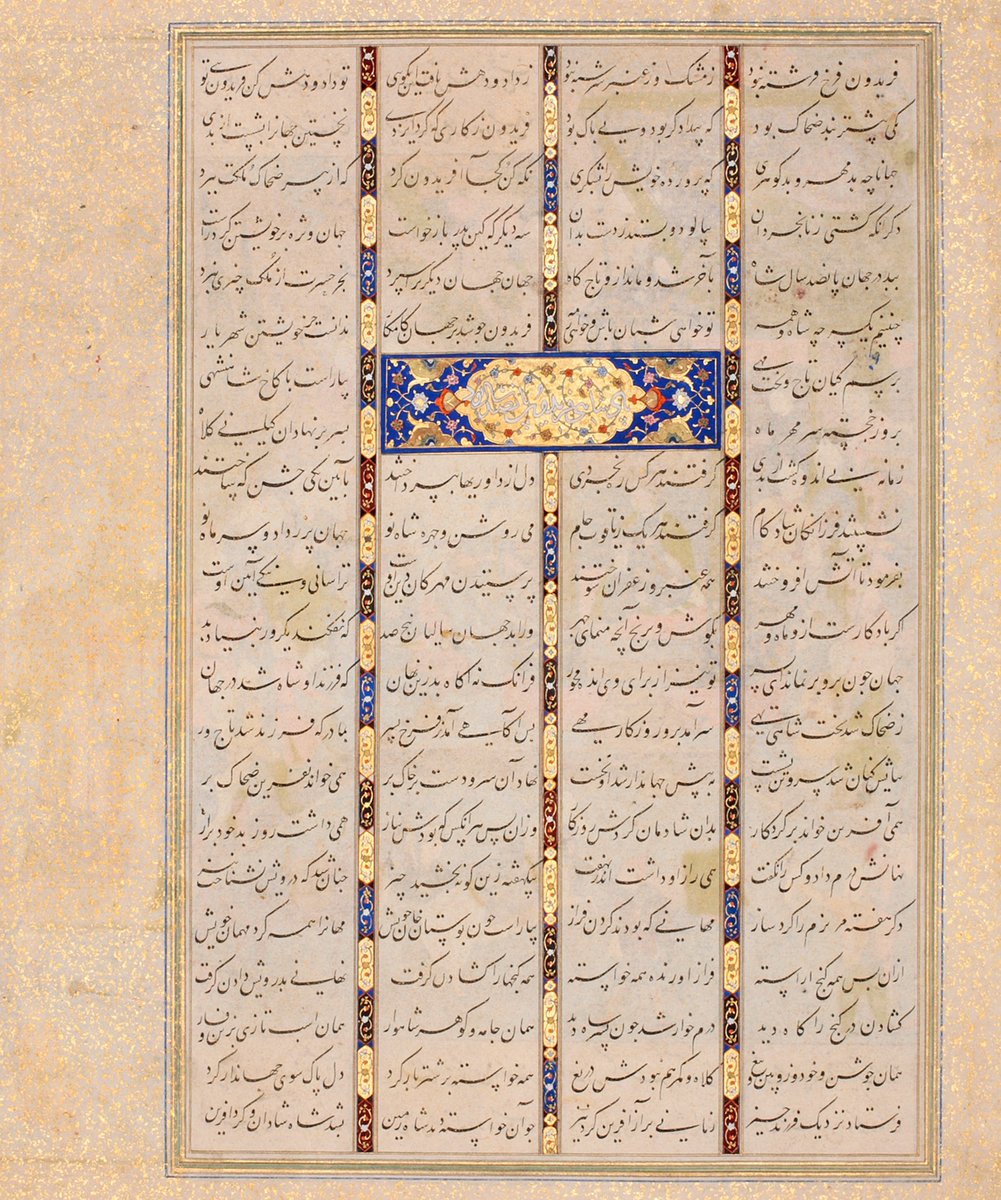 فریدون فرخ فرشته نبود ز مشک و ز عنبر سرشته نبود ز داد و دهش یافت این نکوی تو داد و دهش کن فریدون توی
کی پیشتر بند ضحاک بود که بیدادگر بود و بی باک بود فریدون ز کاری که کرد ایزدی نخستین جهانرا بشست از بدی
جهانا چه بدمهر و بدگوهری که پرورده خویش را بشکری نگه کن کجا آفریدون گرد که از پیر ضحاک ملکت ببرد
دگر آنکه گیتی ز نابخردان بپالود و بستد ز دست بدان سه دیگر که کین پدر بازخواست جهان ویژه بر خویشتن کرد راست
ببد در جهان پانصد سال شاه بآخر شد و ماند ازو تاج و گاه جهان جهان دیگری را سپرد بجز حسرت از ملک چیزی نبرد
چنینیم یکسر چه شاه و تو خواهی شبان باش و خواهی فریدون چو شد بر جهان کامکار ندانست جز خویشتن شهریار
برسم کیان تاج و تخت مهی بیاراست با کاخ شاهنشهی
بروز خجسته سر مهر ماه بسر بر نهاد آن کیانی کلاه
زمانه بی اندوه گشت از بدی گرفتند هر کس ره بخردی دل از داوریها بپرداختند بآیین یکی جشن ساختند
نشستند فرزانگان شادکام گرفتند هر یک ز یاقوت جام می روشن و چهره شاه نو جهان پر ز داد و سر ماه نو
بفرمود تا آتش افروختند همه عنبر و زعفران سوختند پرستیدن مهرگان دین اوست تن آسانی و آیین اوست
اگر یادگارست ازو ماه و مهر بکوش و برنج آنچه منمای چهر ورا بد جهان سالیان پنج صد که نفکند یک روز بنیاد بد
جهان چون برو بر نماند ای پسر تو نیز از برای وی انده مخور فرانک نه آگاه بد زین نهان که فرزند او شاه شد در جهان
ز ضحاک شد تخت شاهی تهی سرآمد برو روزگار مهی پس آگاهی آمد ز فرخ پسر بمادر که فرزند شد تاج ور
نیایش کنان شد سر و تن بشست بپیش جهاندار شد از نخست نهاد آن سر و دست بر خاک بر همی خواند نفرین ضحاک بر
همی آفرین خواند بر کردگار بدان شادمان گردش روزگار وزان پس هر آنکس که بودش نیاز همی داشت روز بد خود براز
نهانش درم داد و کس را نگفت همی راز او داشت اندر نهفت یکی هفته زین گونه بخشید چیز چنان شد که درویش نشناخت نیز
دگر هفته مر بزم را کرد ساز مهانی که بودند گردن فراز بیاراست چون بوستان خان خویش مهانرا همه کرد مهمان خویش
ازان پس همه گنج آراسته فراز آورنده همه خواسته همه گنجها را گشادن گرفت نهانی بدرویش دادن گرفت
گشادن در گنج را گاه دید درم خوار شد چون پسر شاه دید همان جامه و گوهر شاهوار همان اسب تازی بزرین فسار
همان جوشن و خود و زوپین و تیغ کلاه و کمر هم نبودش دریغ همه خواسته بر شتر بار کرد دل پاک سوی جهاندار کرد
فرستاد نزدیک فرزند چیز زبانی پر از آفرین کرد نیز چو آن خواسته دید شاه زمین بستد شاه شادان و کرد آفرین